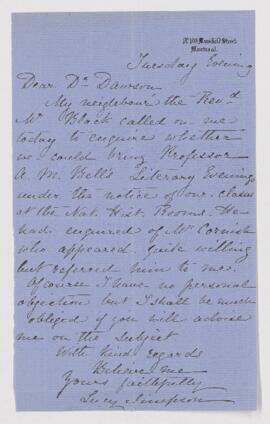 Mansfield Street,
Montreal.
Tuesday Evening
Dear Dr Dawson
My neighbour the Revd
Mr Black called on me
today to enquire whether
we could bring Professor
A. M. Bell's Literary Evenings
under the notice of our classes
at the Nat. Hist. Rooms. He
had enquired of Mr Cornish
who appeared quite willing
but referred him to me.
Of course I have no personal
objection but I shall be much
obliged if you will advise
me on the subject
With kind regards
Believe me
Yours faithfully
Lucy Simpson